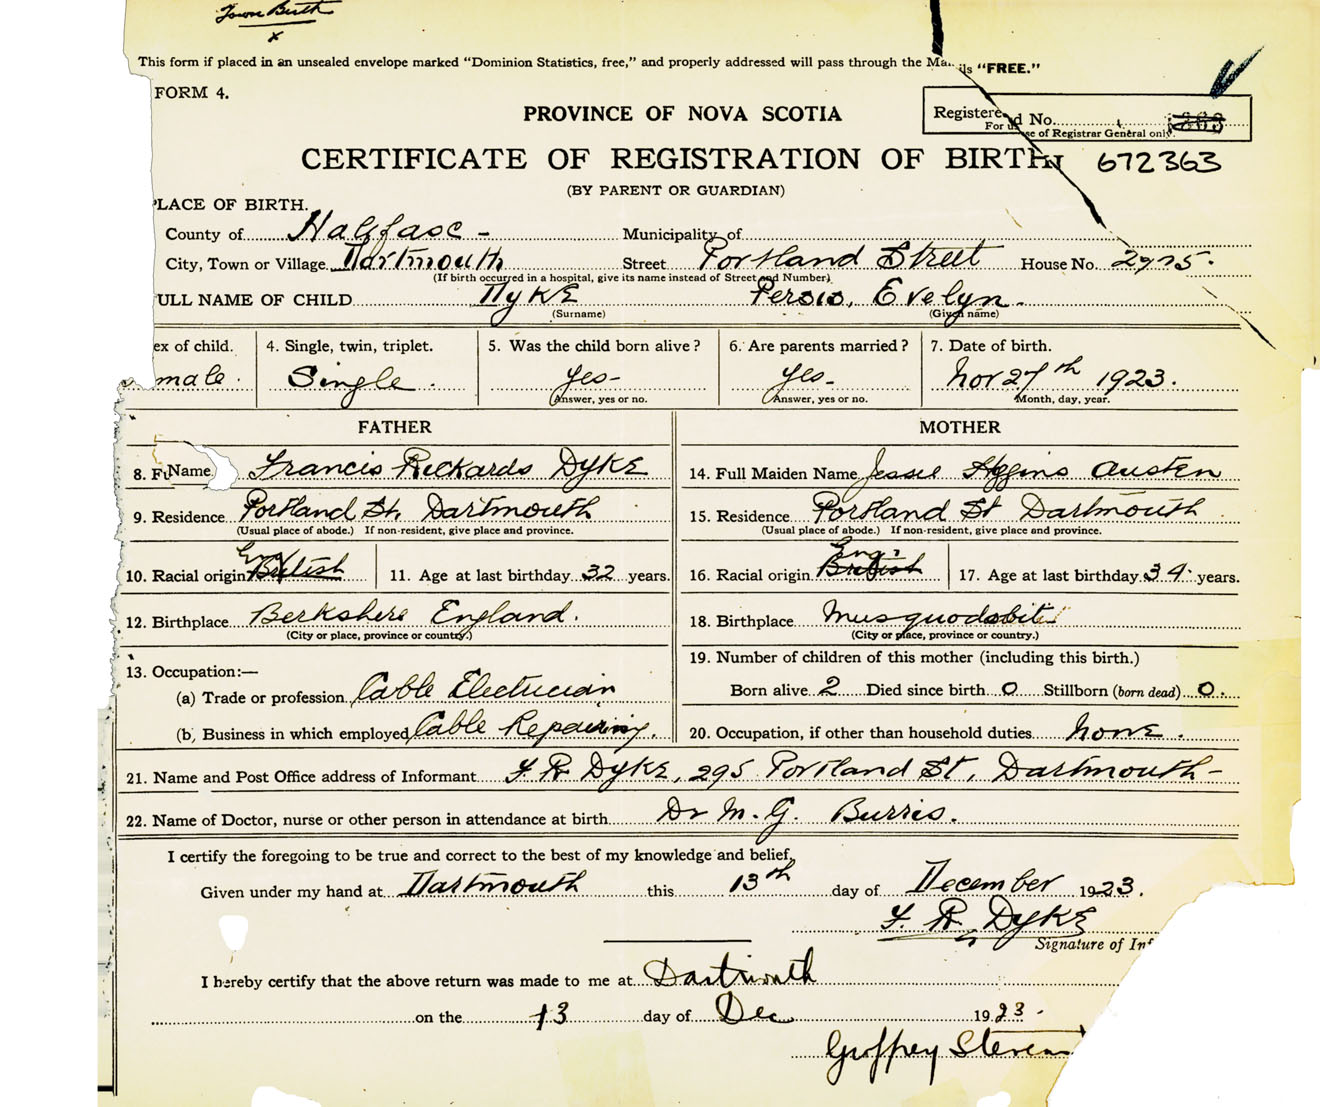 Town Birth
x
This form if placed in an unsealed envelope marked "Dominion Statistics, free," and properly addressed will pass through the Ma ils "FREE."
FORM 4.
PROVINCE OF NOVA SCOTIA
Registere d No.
For us se of Registrar General only.
CERTIFICATE OF REGISTRATION OF BIRTH 672363
(BY PARENT OR GUARDIAN)
PLACE OF BIRTH.
County of Halifax - Municipality of
City, Town or Village Dartmouth Street Portland Street House No. 295.
(If birth occurred in a hospital, give its name instead of Street and Number)
ULL NAME OF CHILD DYKE Persis, Evelyn.
(Surname) (Given name)
ex of child. 4. Single, twin, triplet. 5. Was the child born alive? 6. Are parents married? 7. Date of birth.
male. Single. yes- yes- Nov 27th 1923.
Answer, yes or no. Answer, yes or no. Month, day, year.
FATHER MOTHER
8. Fu Name Francis Rickards DYKE 14. Full Maiden Name Jessie Higgins Austen
9. Residence Portland St, Dartmouth 15. Residence Portland St Dartmouth
(Usual place of abode.) If non-resident, give place and province. (Usual place of abode.) If non-resident, give place and province.
Eng Eng.
10. Racial origin British 11. Age at last birthday 32 years. 16. Racial origin British 17. Age at last birthday 34 years.
12. Birthplace Berkshire England. 18. Birthplace Musquodobit
(City or place, province or country.) (City or place, province or country.)
13. Occupation:— 19. Number of children of this mother (including this birth.)
(a) Trade or profession Cable Electrician Born alive 2 Died since birth 0 Stillborn (born dead) 0.
(b) Business in which employed Cable Repairing. 20. Occupation, if other than household duties none.
21. Name and Post Office address of Informant F. R. DYKE, 295 Portland St, Dartmouth-
22. Name of Doctor, nurse or other person in attendance at birth Dr M. G. Burris.
I certify the foregoing to be true and correct to the best of my knowledge and belief,
Given under my hand at Dartmouth this 13th day of December 1923.
F. R. DYKE
Signature of Inf
I hereby certify that the above return was made to me at Dartmouth
on the 13 day of Dec 1923.
Geoffrey Stevens